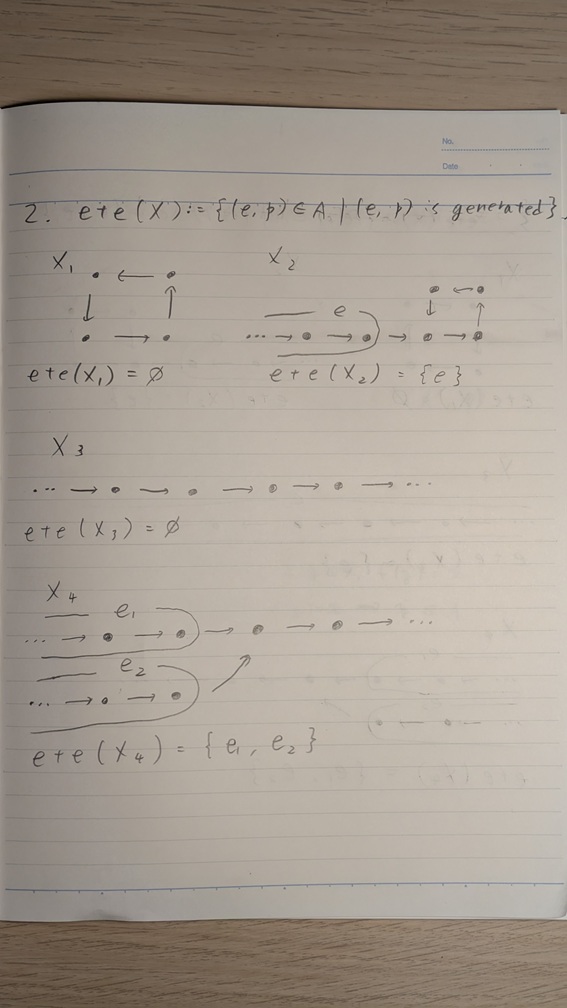 No.
Date
2. ete(X):={(e, p)∈A | (e, p) is generated}.
X₁ X₂
e
ete(X₁) = ∅ ete(X₂) = {e}
X₃
... → • → • → • → • → ...
ete(X₃) = ∅
X₄
e₁
e₂
ete(X₄) = {e₁, e₂}